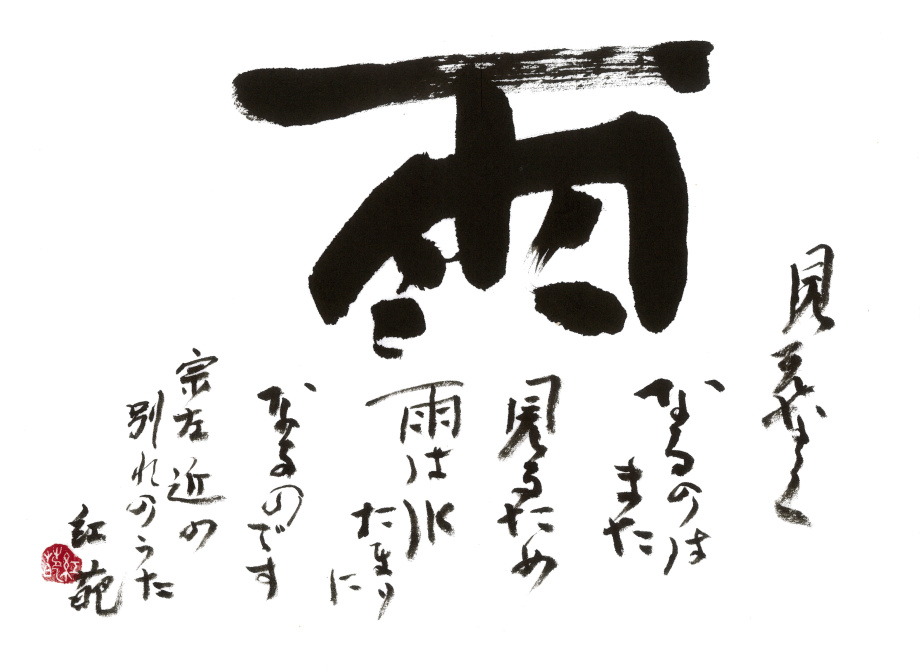 雨
見えなく
なるのは
また
見るため
雨は水
たまり
に
なるのです
宗左近の
別れのうた
紅葩